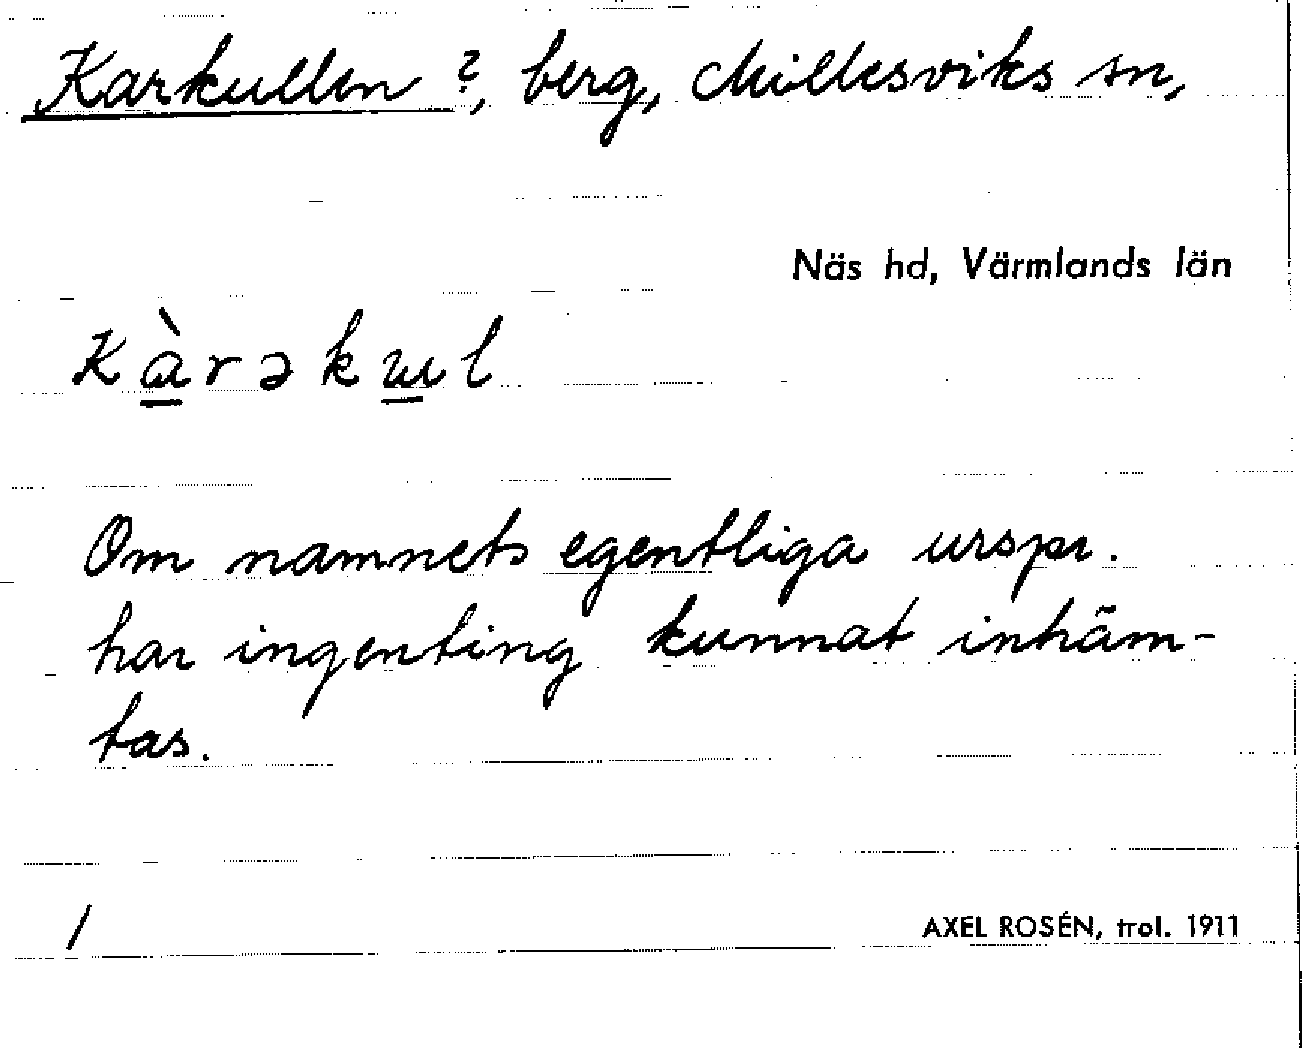 Karkullen ?, berg, Millesviks sn,
Näs hd, Värmlands län
Kàrəkul
Om namnets egentliga urspr.
har ingenting kunnat inhäm-
tas.
/
AXEL ROSÉN, trol. 1911